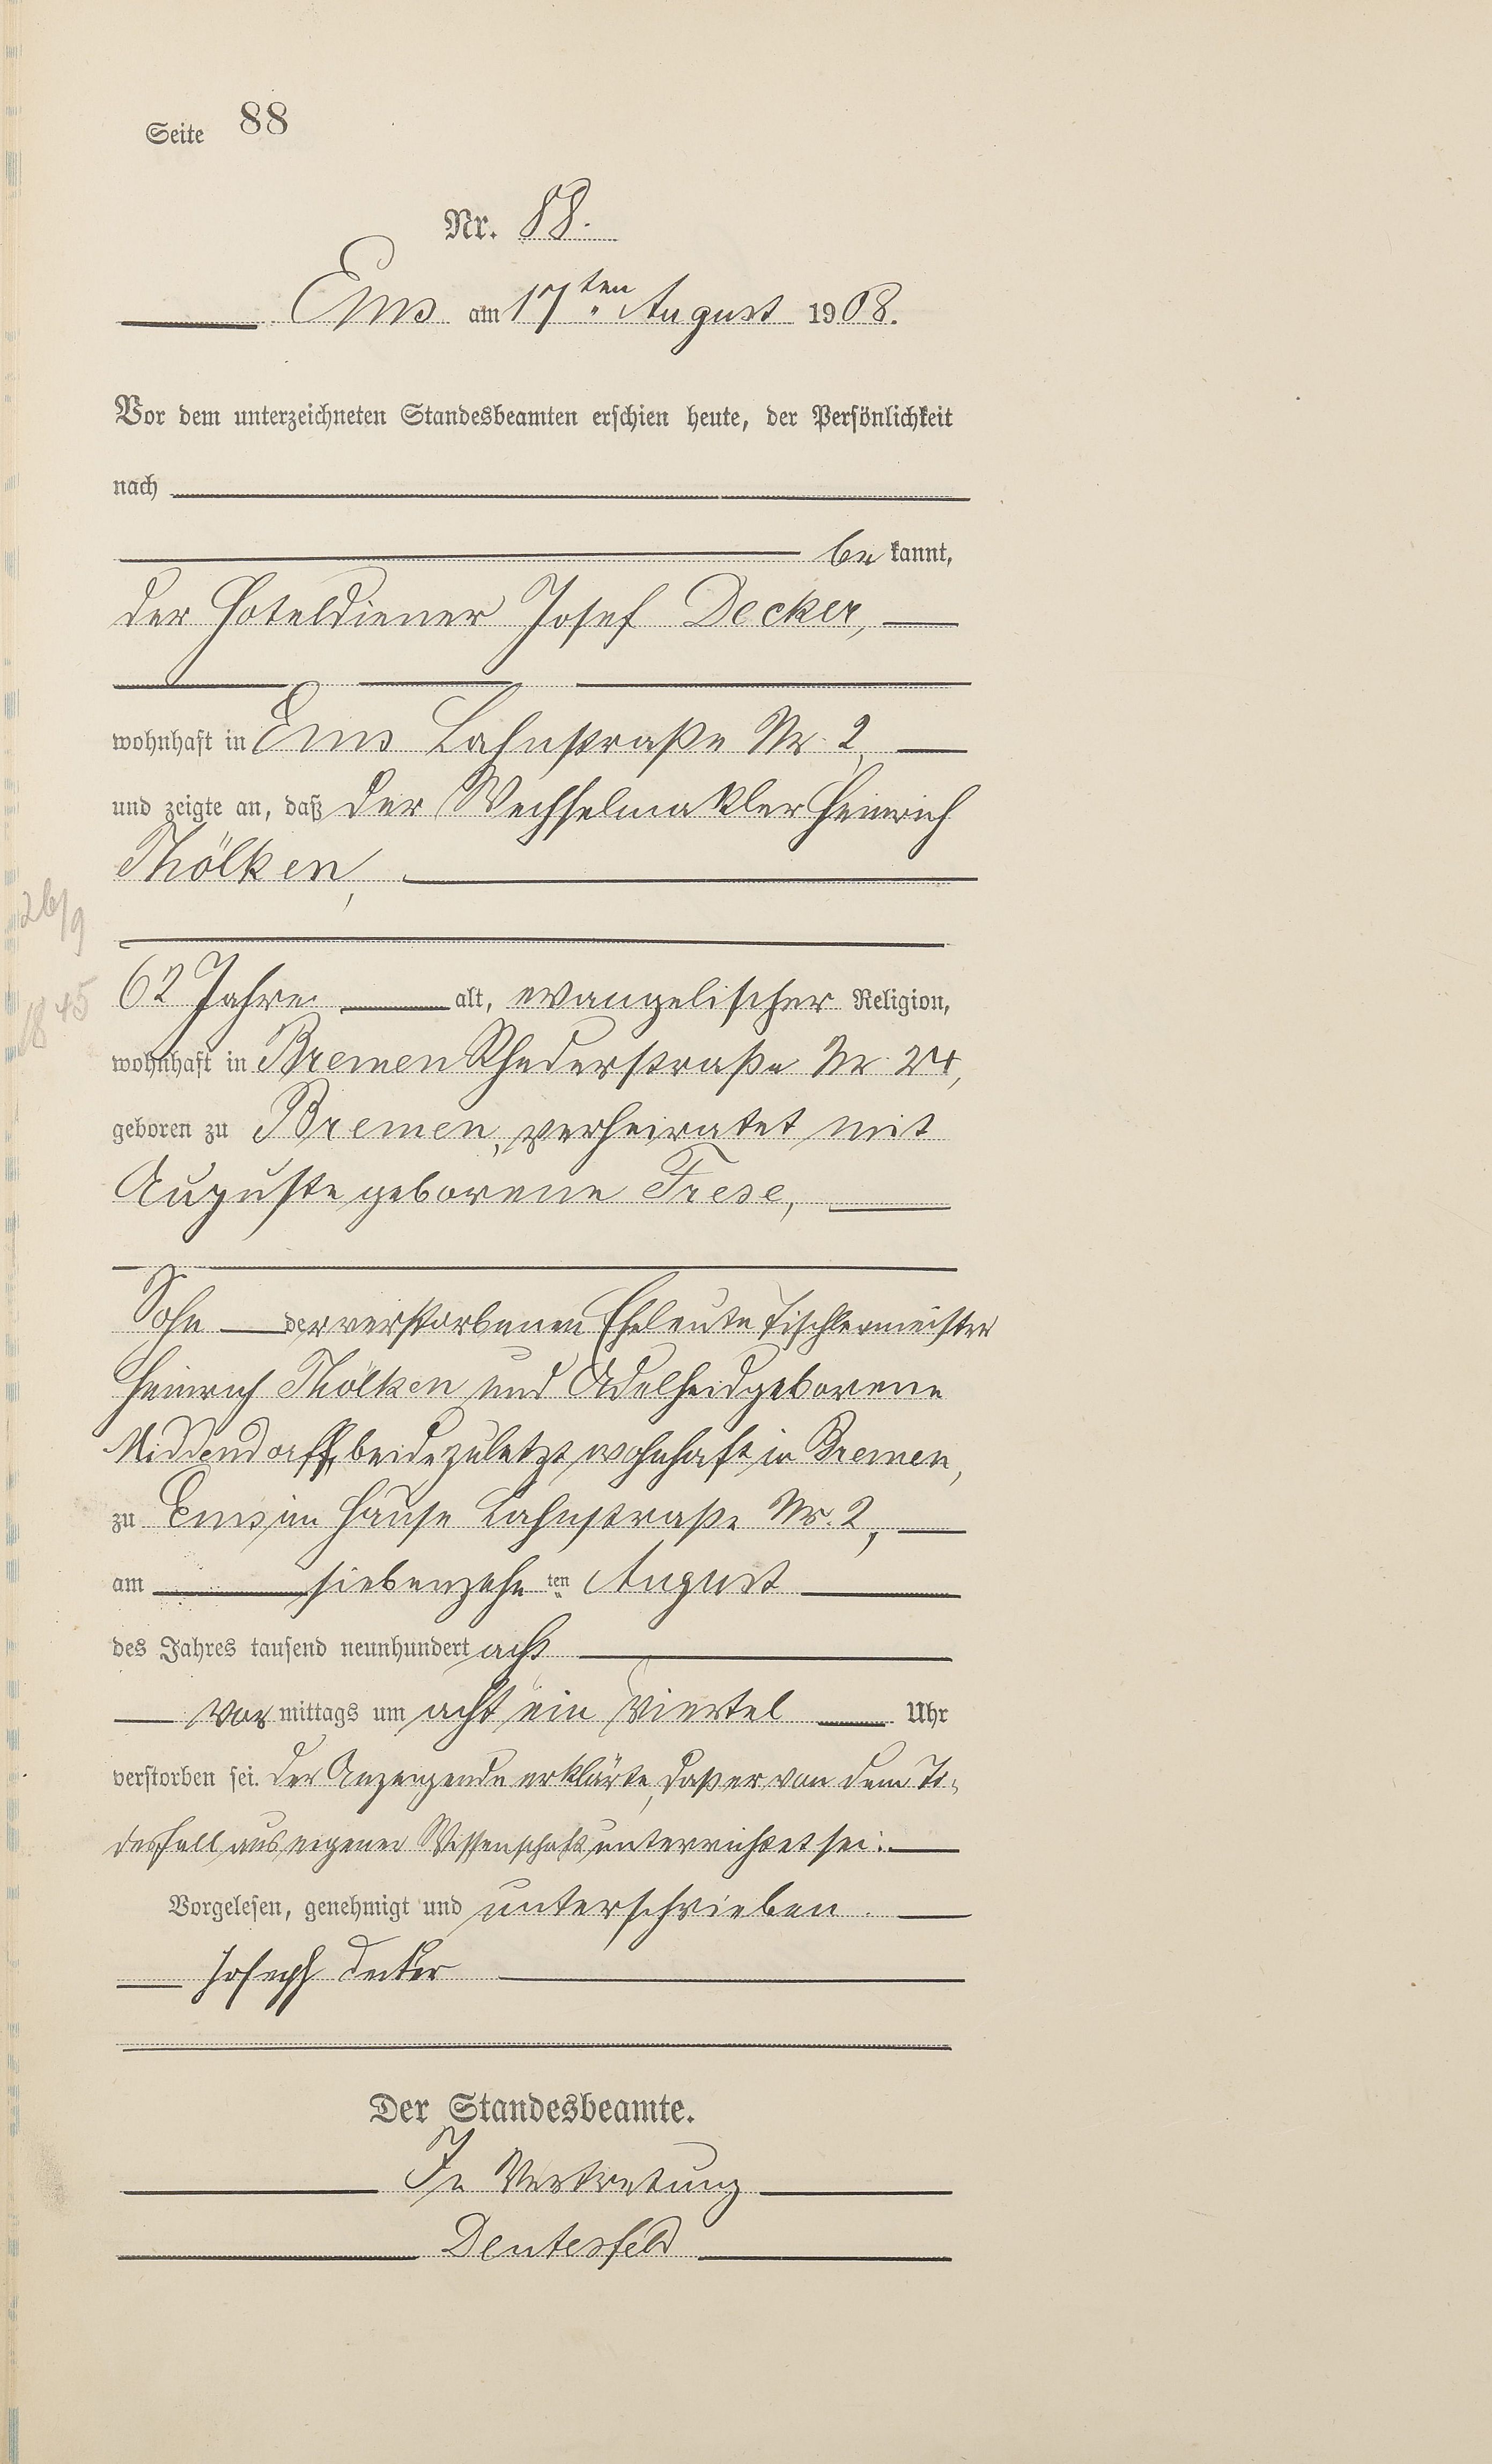 Seite 88
Nr. 88.
Ems am 17ten August 1908.
Vor dem unterzeichneten Standesbeamten erschien heute, der Persönlichkeit
nach
be kannt,
der Hoteldiener Josef Decker,
wohnhaft in Ems Lahnstraße Nr. 2,
und zeigte an, daß der Wechselmakler Heinrich
Thölken,
26/9
62 Jahre alt, evangelischer Religion,
1845
wohnhaft in Bremen Rhederstraße Nr. 24,
geboren zu Bremen, verheiratet mit
Auguste geborene Frese,
Sohn der verstorbenen Eheleute Tischlermeister
Heinrich Thölken und Adelheid geborene
Middendorff, beide zuletzt wohnhaft in Bremen,
zu Ems im Hause Lahnstraße Nr. 2,
am siebenzehnten August
des Jahres tausend neunhundert acht
Vor mittags um acht ein Viertel Uhr
verstorben sei. Der Anzeigende erklärte, daß er von dem To-
desfall aus eigener Wissenschaft unterrichtet sei.
Vorgelesen, genehmigt und unterschrieben.
Joseph Decker
Der Standesbeamte.
In Vertretung
Deutesfeld